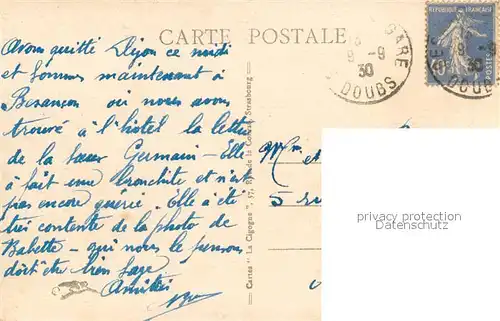 CARTE POSTALE
Avons quitté Dijon ce midi
et sommes maintenant à
Besançon où nous avons
trouvé à l'hôtel la lettre
de la sœur Germain - Elle
a fait une bronchite et n'est
pas encore guérie. Elle a été
très contente de la photo de
Babette - qui nous le pensons
doit être bien sage
Amitiés
Cartes "La Cigogne", 37, Rue de la Course, Strasbourg
GARE
9-9
30
DOUBS
REPUBLIQUE FRANÇAISE
POSTES
9
30
DOUBS
privacy protection
Datenschutz